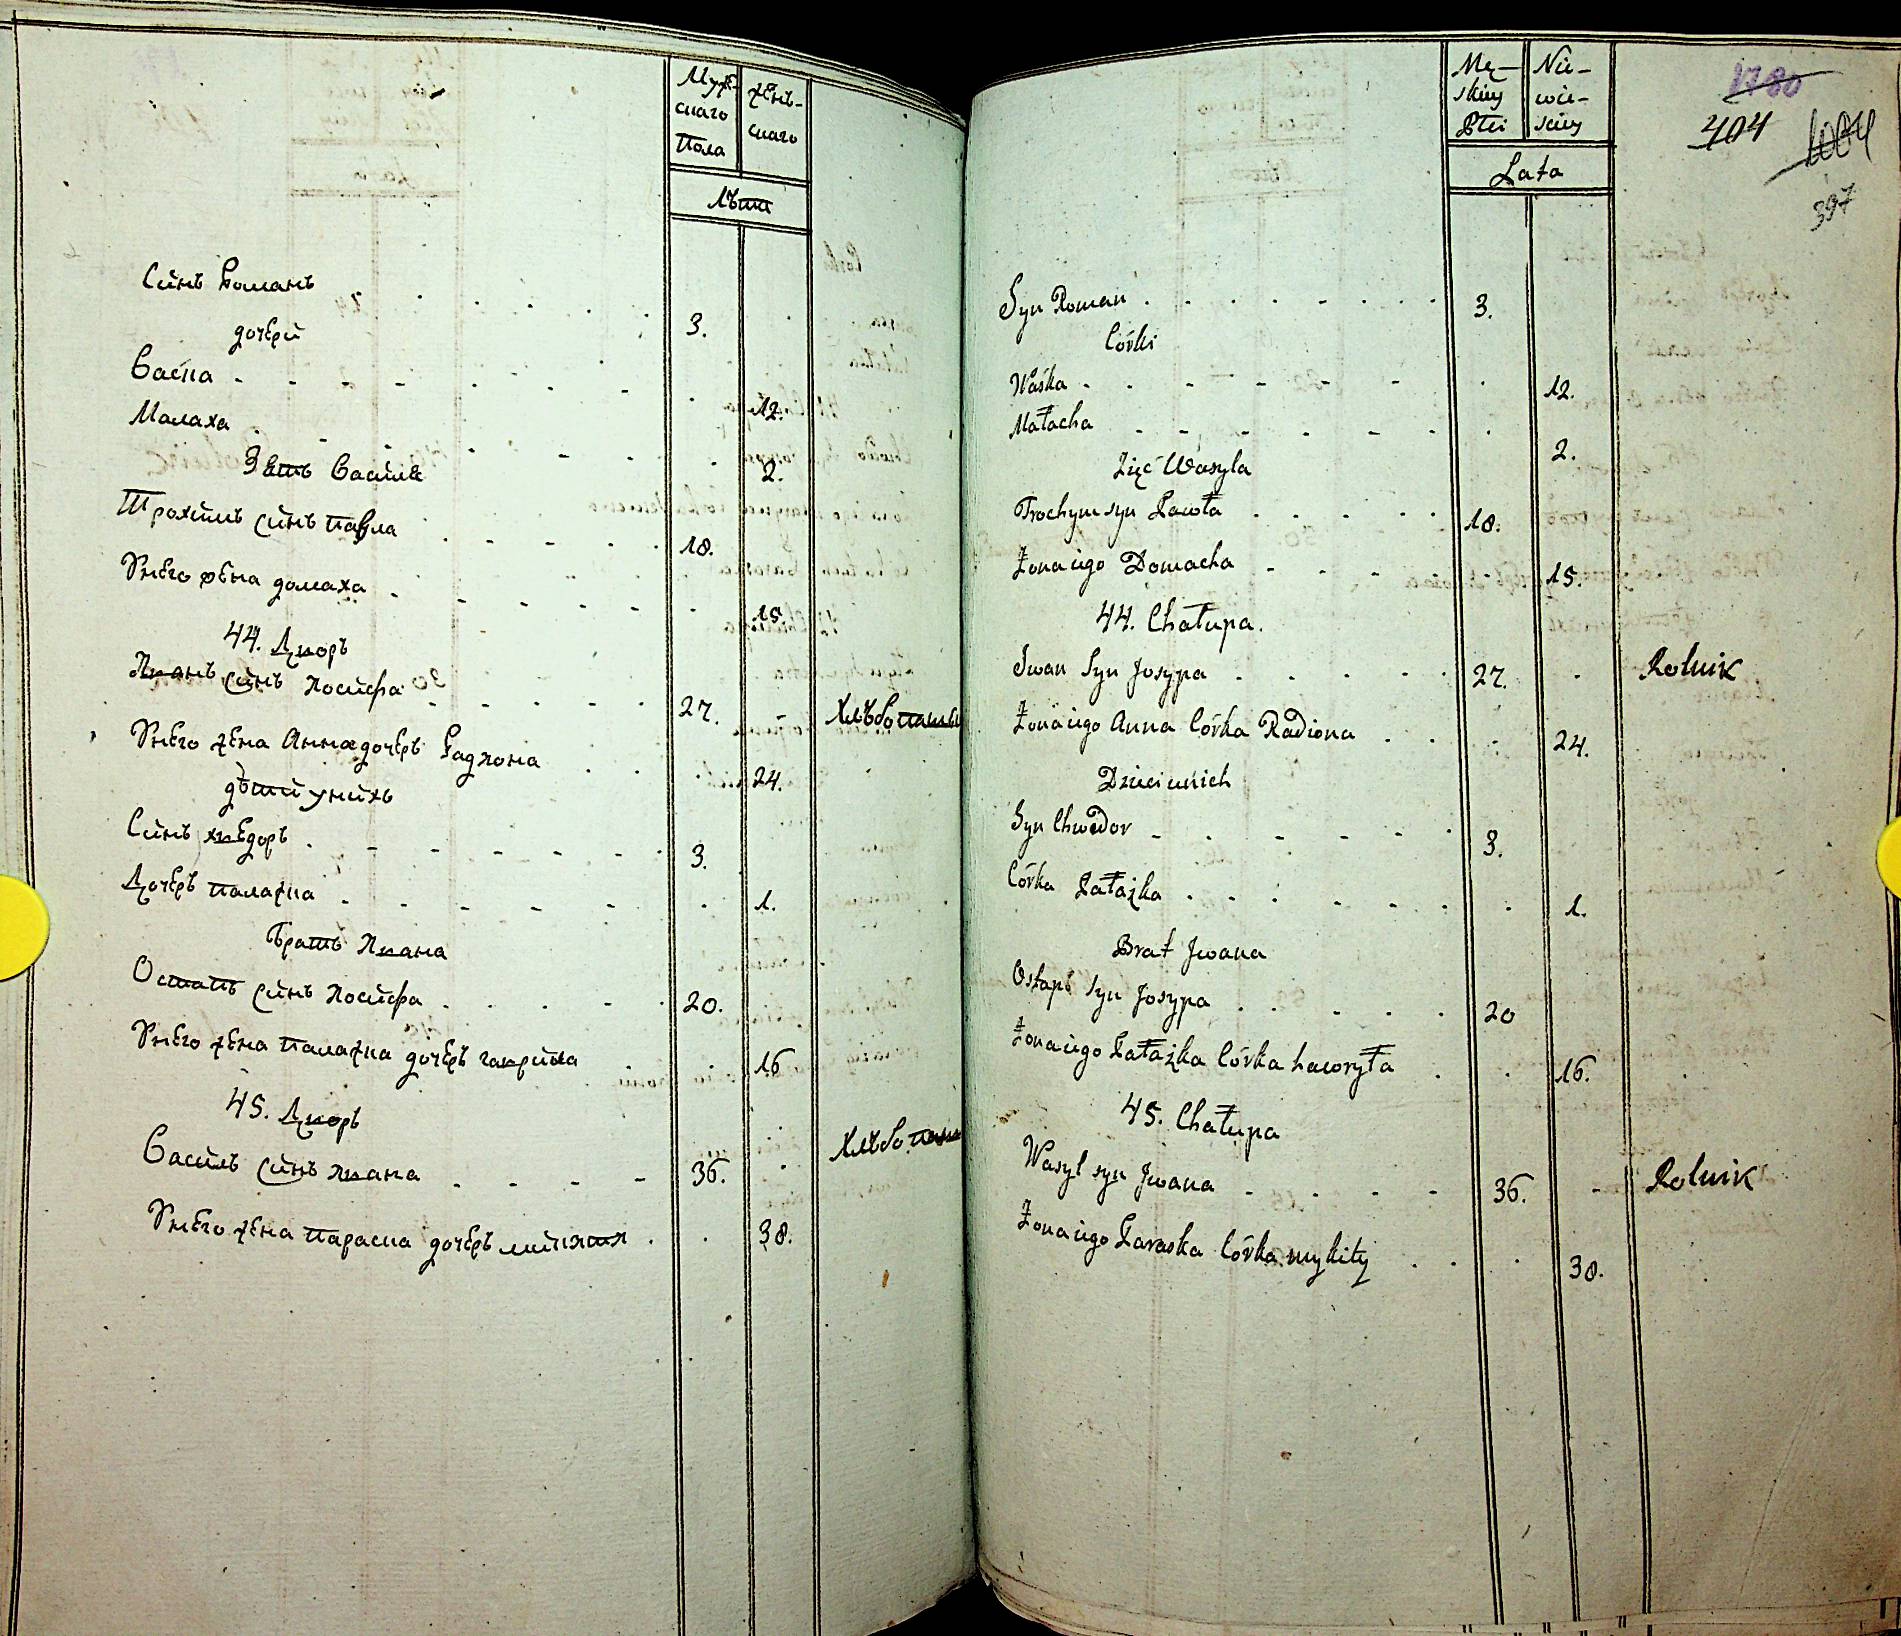 Муже-
скаго
Пола
женъ-
скаго
лѣтй
Сйнъ Романъ . . . . . . 3.
дочерй
Васка - - - - - - - 12.
Малаха . - - - - - 2.
Зять Васйля
Трохймъ сйнъ павла . - - - . 18.
Унего жена домаха - - - - - 15.
44. Дворъ
Иванъ сйнъ Иосйфа - - - - - 27. - Хлѣбопашец
Унего жена Анна дочерь Радиона . . . 24.
дѣтй унйхъ
Сйнъ хведоръ . - - - - - - 3.
Дочерь палажка . - - - - . 1.
братъ Ивана
Остапъ сйнъ Иосйфа . . . . . 20.
Унего жена палажка дочерь гаврила . 16
45. Дворъ
Васйль сйнъ ивана - - - - 36. - Хлѣбопаш
Унего жена параска дочерь мйкитй . . 38.
Mę-
skiey
Płci
Nie-
wie-
sciey
Lata
1780
404
1004
397
Syn Roman . . . . . . . . 3.
Córki
Waśka . . - - - - - . 12.
Małacha - - - - - - . 2.
Zięć Wasyla
Trochym syn Pawła . . . . . 18.
Żona iego Domacha - - - - 15.
44. Chałupa.
Iwan Syn Josypa . . . . . 27. - Rolnik
Żona iego Anna Córka Radiona . . . 24.
Dzieci unich
Syn Chwedor - - - - - - 3.
Córka Pałażka . . . - - - . 1.
Brat Jwana
Ostap syn Josypa . . . . . 20
Żona iego Pałażka Córka hawryła . . 16.
45. Chałupa
Wasyl syn Jwana - . . - - 36. - Rolnik
Żona iego Paraska Córka mykity . . . 38.